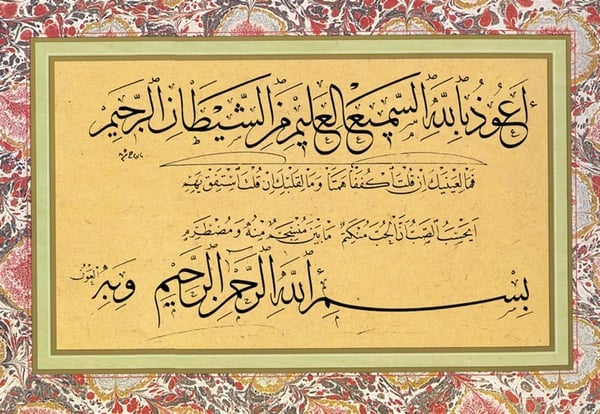 أعوذ بالله السميع العليم من الشيطان الرجيم
فما لعينيك ان قلت اكففا همتا وما لقلبك ان قلت استفق يهم
ايحسب الصب ان الحب منكتم ما بين منسجم منه ومضطرم
بسم الله الرحمن الرحيم وبه العون